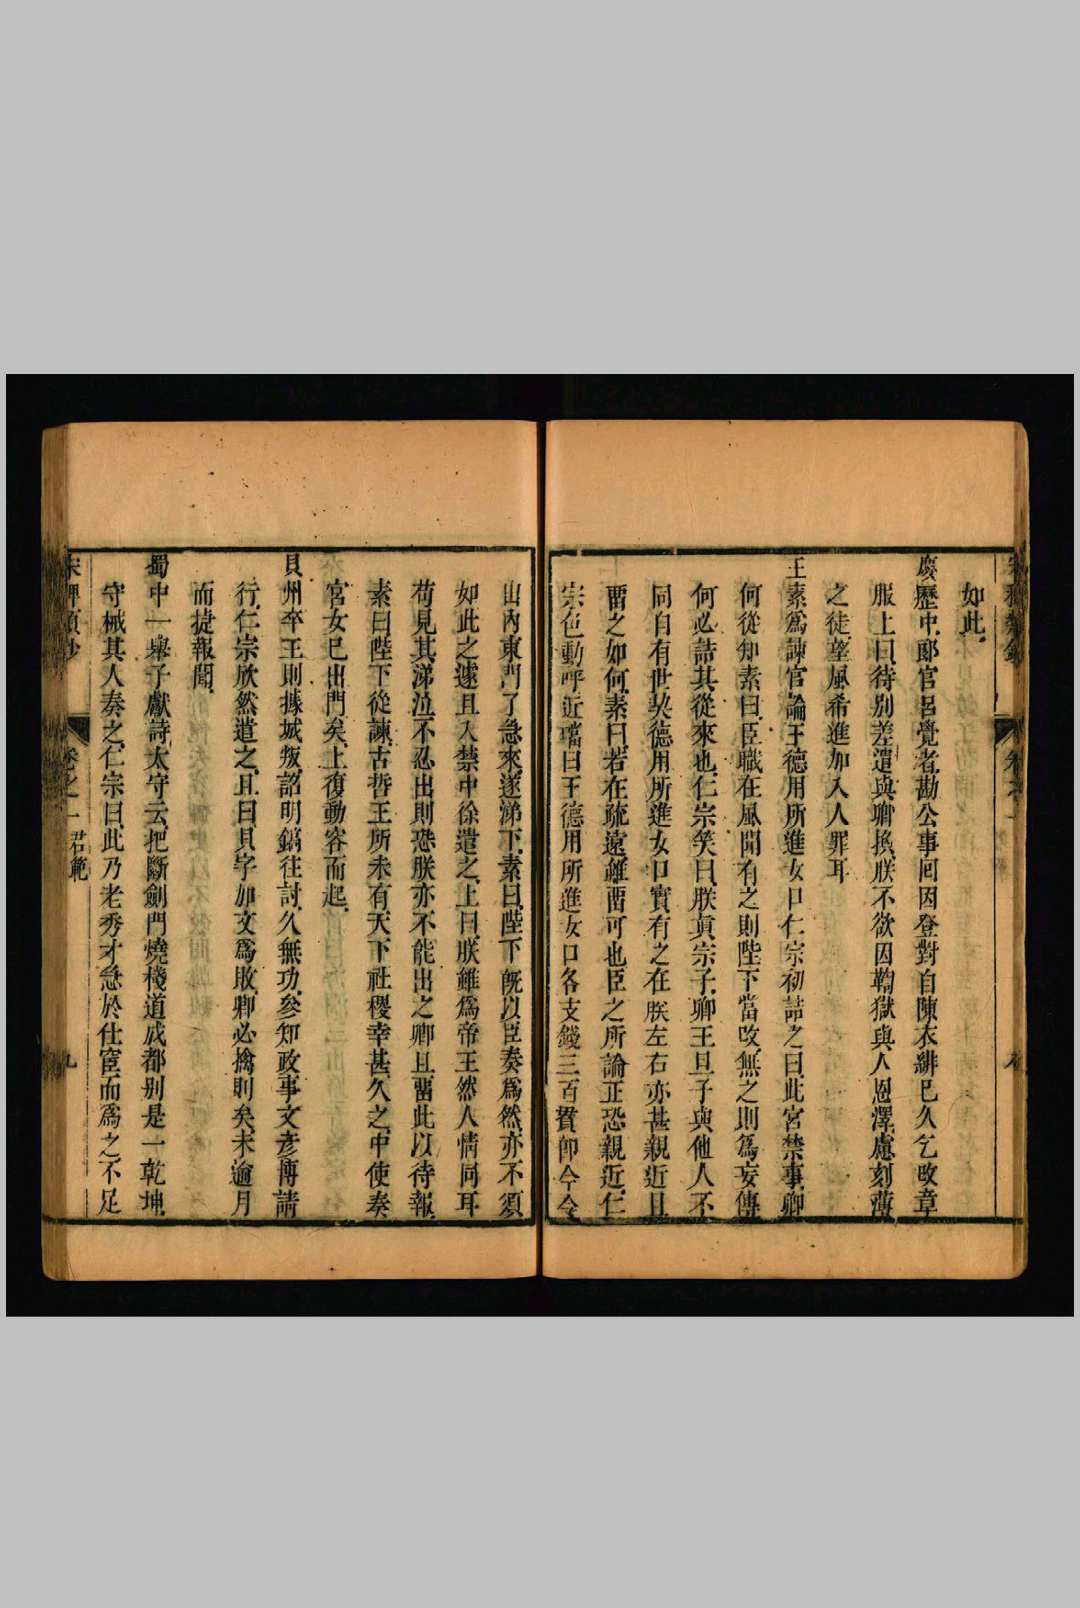 如此
慶歷中郞官呂覺者勘公事回因登對自陳衣緋已久乞改章
服上曰待別差遣與卿換朕不欲因鞫獄與人恩澤慮刻薄
之徒望風希進加入人罪耳
王素爲諫官論王德用所進女口仁宗初詰之曰此宮禁事卿
何從知素曰臣職在風聞有之則陛下當改無之則爲妄傳
何必詰其從來也仁宗笑曰朕眞宗子卿王旦子與他人不
同自有世契德用所進女口實有之在朕左右亦甚親近且
畱之如何素曰若在疏遠雖畱可也臣之所論正恐親近仁
宗色動呼近璫曰王德用所進女口各支錢三百貫卽今令
出內東門了急來遂涕下素曰陛下旣以臣奏爲然亦不須
如此之遽且入禁中徐遣之上曰朕雖爲帝王然人情同耳
苟見其涕泣不忍出則恐朕亦不能出之卿且畱此以待報
素曰陛下從諫古哲王所未有天下社稷幸甚久之中使奏
宮女已出門矣上復動容而起
貝州卒王則據城叛詔明鎬往討久無功參知政事文彥博請
行仁宗欣然遣之且曰貝字加文爲敗卿必擒則矣未逾月
而捷報聞
蜀中一舉子獻詩太守云把斷劍門燒棧道成都别是一乾坤
守械其人奏之仁宗曰此乃老秀才急於仕宦而爲之不足
宋稗類鈔 卷之一 君範 九